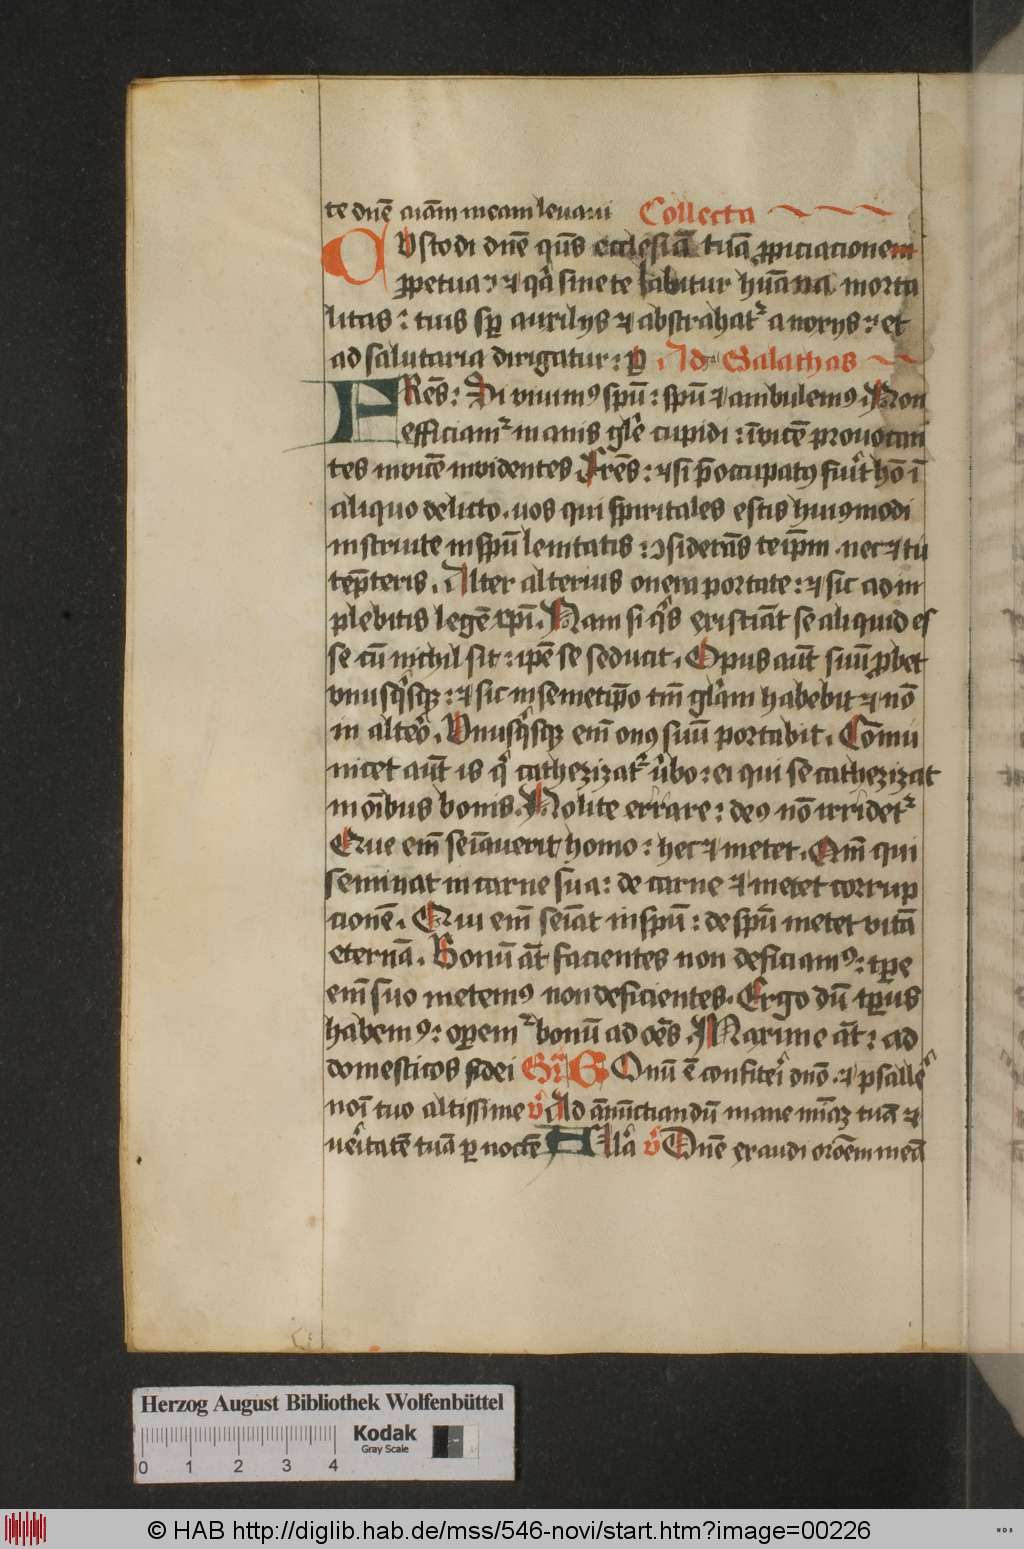 te dnē aīam meam leuaui Collecta
CVstodi dnē qūs ecclesiā tuā ꝓpiciacionem
ꝑpetua: ⁊ qͣ sine te labitur hūana morta
litas: tuis sꝑ auxilijs ⁊ abstrahatᷣ a noxijs: et
ad salutaria dirigatur: ꝑ Ad Galathas
FRēs: Si viuimꝰ spū: spū ⁊ ambulemꝰ. Non
efficiamᷣ inanis glīe cupidi: īuicē prouocan
tes inuicē inuidentes Frēs: ⁊ si p̄occupatꝰ fuīt hō ī
aliquo delicto. uos qui spiritales estis huiꝰmodi
instruite in spū lenitatis: ꝯsiderās teip̄m. nec ⁊ tu
tēpteris. Alter alterius onera portate: ⁊ sic adin
plebitis legē xpī. Nam si qͥs existīat se aliquid es
se cū nichyl sit: ip̄e se seducit. Opus aūt suū ꝓbet
vnusqͥsqꝫ: ⁊ sic in semetip̄o tm̄ glīam habebit ⁊ nō
in altēo. Vnusqͥsqꝫ em̄ onꝰ suū portabit. Cōmu
nicet aūt is qͥ cathezizatᷣ ūbo: ei qui se cathezizat
in oībus bonis. Nolite errare: deꝰ nō irridetᷣ
Que em̄ seīauerit homo: hec ⁊ metet. Qm̄ qui
seminat in carne sua: de carne ⁊ metet corrup
cionē. Qui em̄ seīat in spū: de spū metet vitā
eternā. Bonū āt facientes non deficiamꝰ: tꝑe
em̄ suo metemꝰ non deficientes. Ergo dū tꝑus
habemꝰ: oꝑemᷣ bonū ad oēs. Maxime āt: ad
domesticos fidei Gr̄ BOnū ē confiteī dnō. ⁊ psallē
noī tuo altissime v̄ Ad ānūctiandū mane mīaꝫ tuā ⁊
ueītatē tuā ꝑ noctē Alla v̄ Dnē exaudi orōem meā
Herzog August Bibliothek Wolfenbüttel
Kodak
Gray Scale
0 1 2 3 4
© HAB http://diglib.hab.de/mss/546-novi/start.htm?image=00226